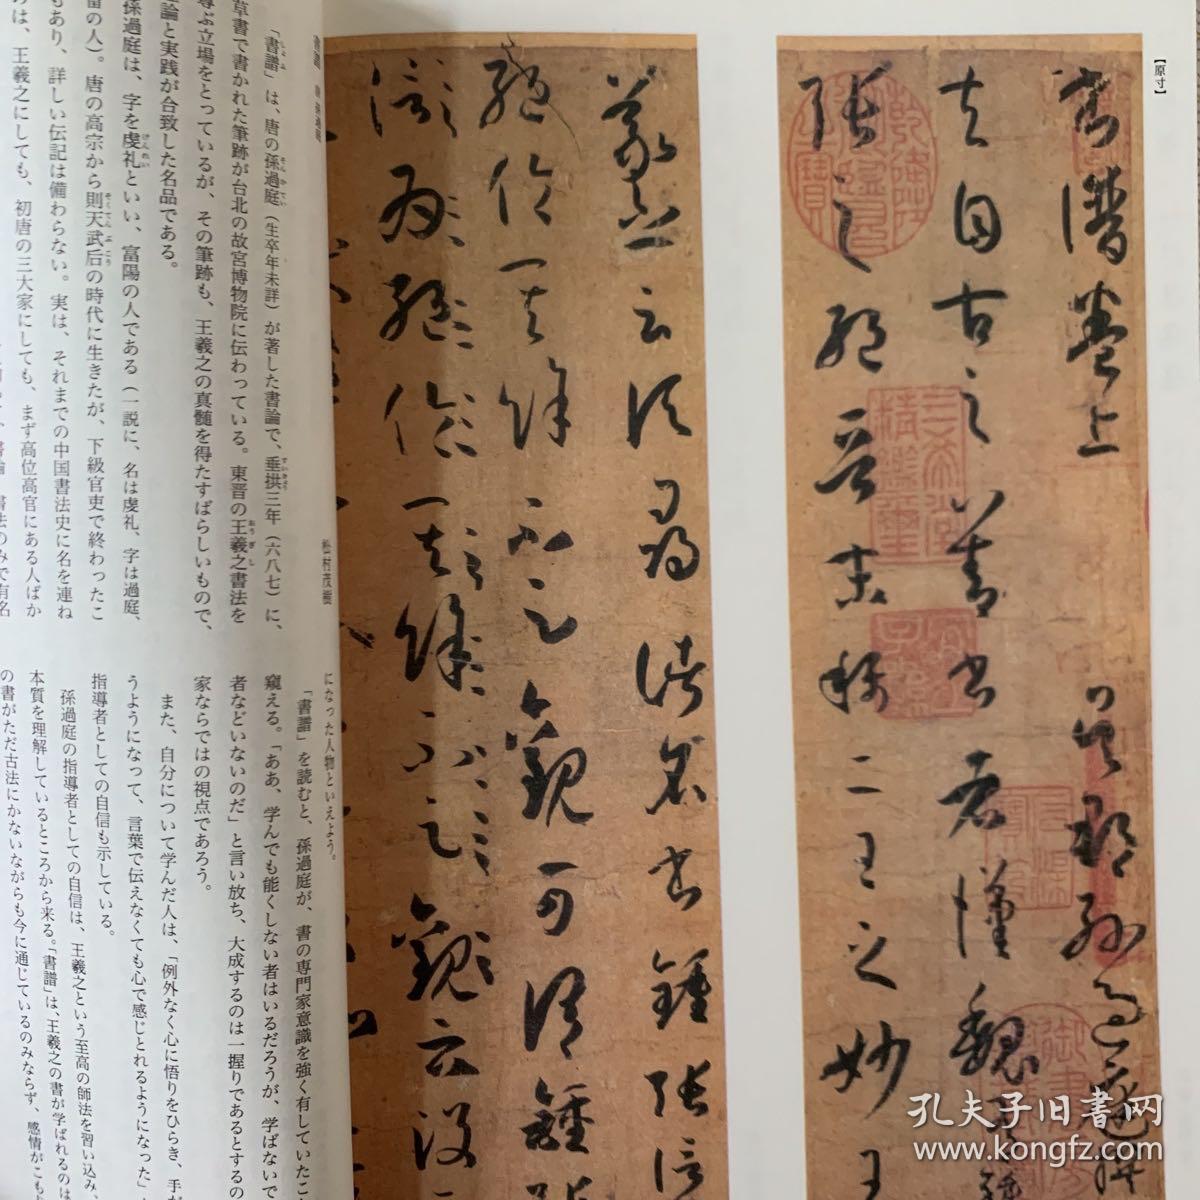 【原寸】
書譜卷上 吳郡孫過庭撰
夫自古之善書者漢魏有鍾
張之絕晉末稱二王之妙王
羲之云頃尋諸名書鍾張信
為絕倫其餘不足觀可謂鍾張
云沒
書譜 唐 孫過庭
松村茂樹
「書譜」は、唐の孫過庭（生卒年未詳）が著した書論で、垂拱三年（六八七）に、
草書で書かれた筆跡が台北の故宮博物院に伝わっている。東晋の王羲之書法を
尊ぶ立場をとっているが、その筆跡も、王羲之の真髄を得たすばらしいもので、
論と実践が合致した名品である。
孫過庭は、字を虔礼といい、富陽の人である（一説に、名は虔礼、字は過庭、
留の人）。唐の高宗から則天武后の時代に生きたが、下級官吏で終わったこ
もあり、詳しい伝記は備わらない。実は、それまでの中国書法史に名を連ね
のは、王羲之にしても、初唐の三大家にしても、まず高位高官にある人ばか
書法のみで有名
になった人物といえよう。
「書譜」を読むと、孫過庭が、書の専門家意識を強く有していたこ
窺える。「ああ、学んでも能くしない者はいるだろうが、学ばないで
者などいないのだ」と言い放ち、大成するのは一握りであるとするの
家ならではの視点であろう。
また、自分について学んだ人は、「例外なく心に悟りをひらき、手が
うようになって、言葉で伝えなくても心で感じとれるようになった」
指導者としての自信も示している。
孫過庭の指導者としての自信は、王羲之という至高の師法を習い込み、
本質を理解しているところから来る。「書譜」は、王羲之の書が学ばれるのは
の書がただ古法にかないながらも今に通じているのみならず、感情がこも
孔夫子旧书网
www.kongfz.com